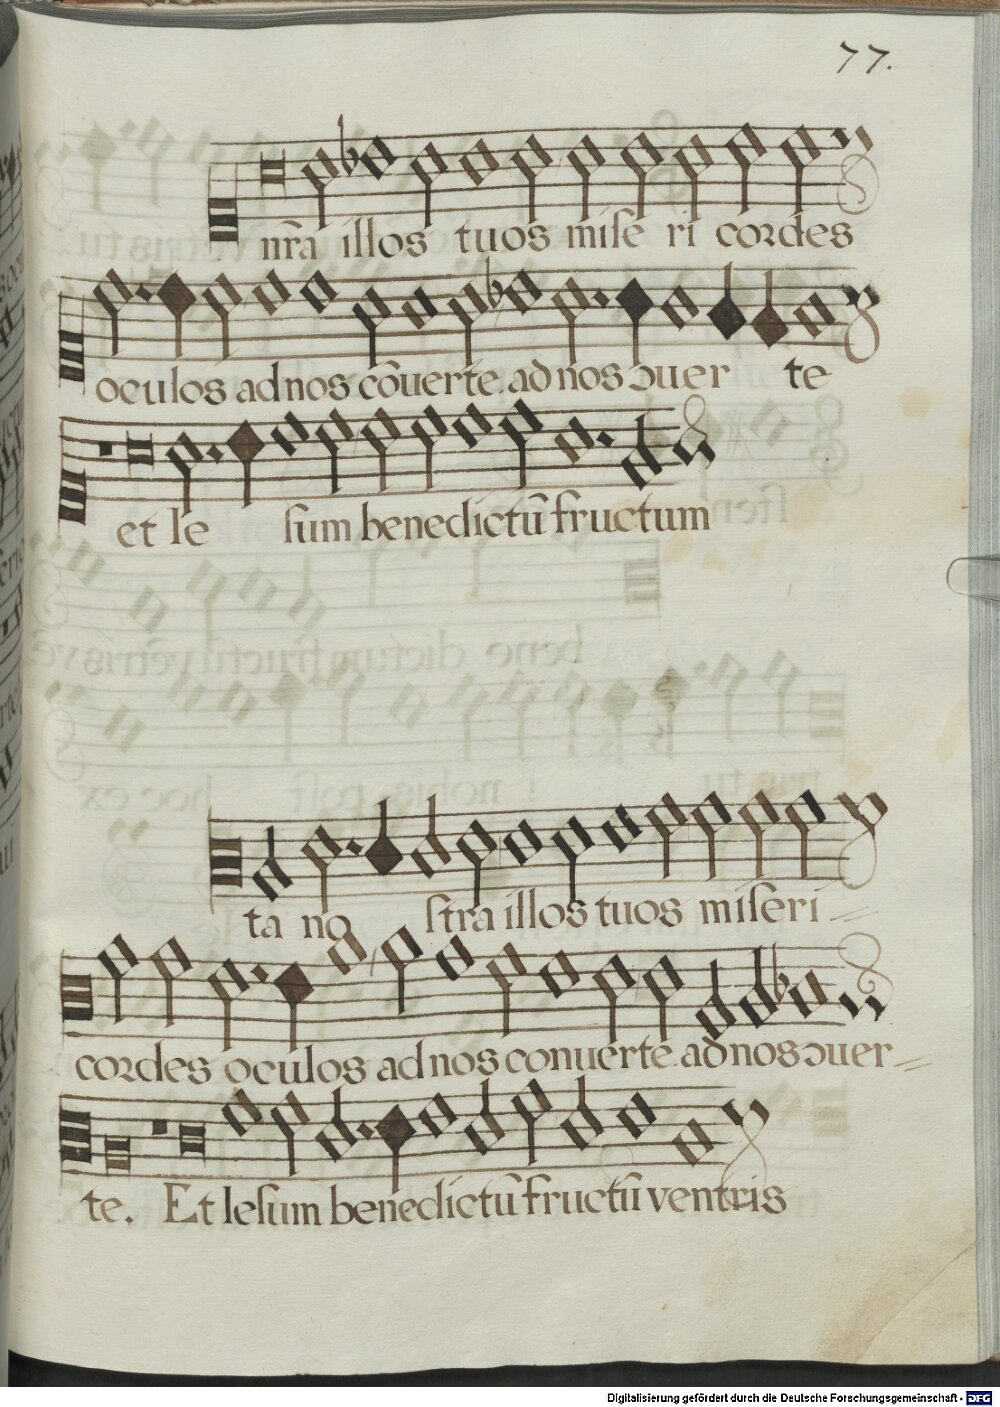 77.
nr̃a illos tuos mise ri cordes
oculos ad nos cõuerte. ad nos ɔuer te
et Ie sum benedictũ fructum
ta no stra illos tuos miseri
cordes oculos ad nos conuerte. ad nos ɔuer
te. Et Iesum benedictũ fructũ ventris
Digitalisierung gefördert durch die Deutsche Forschungsgemeinschaft - DFG